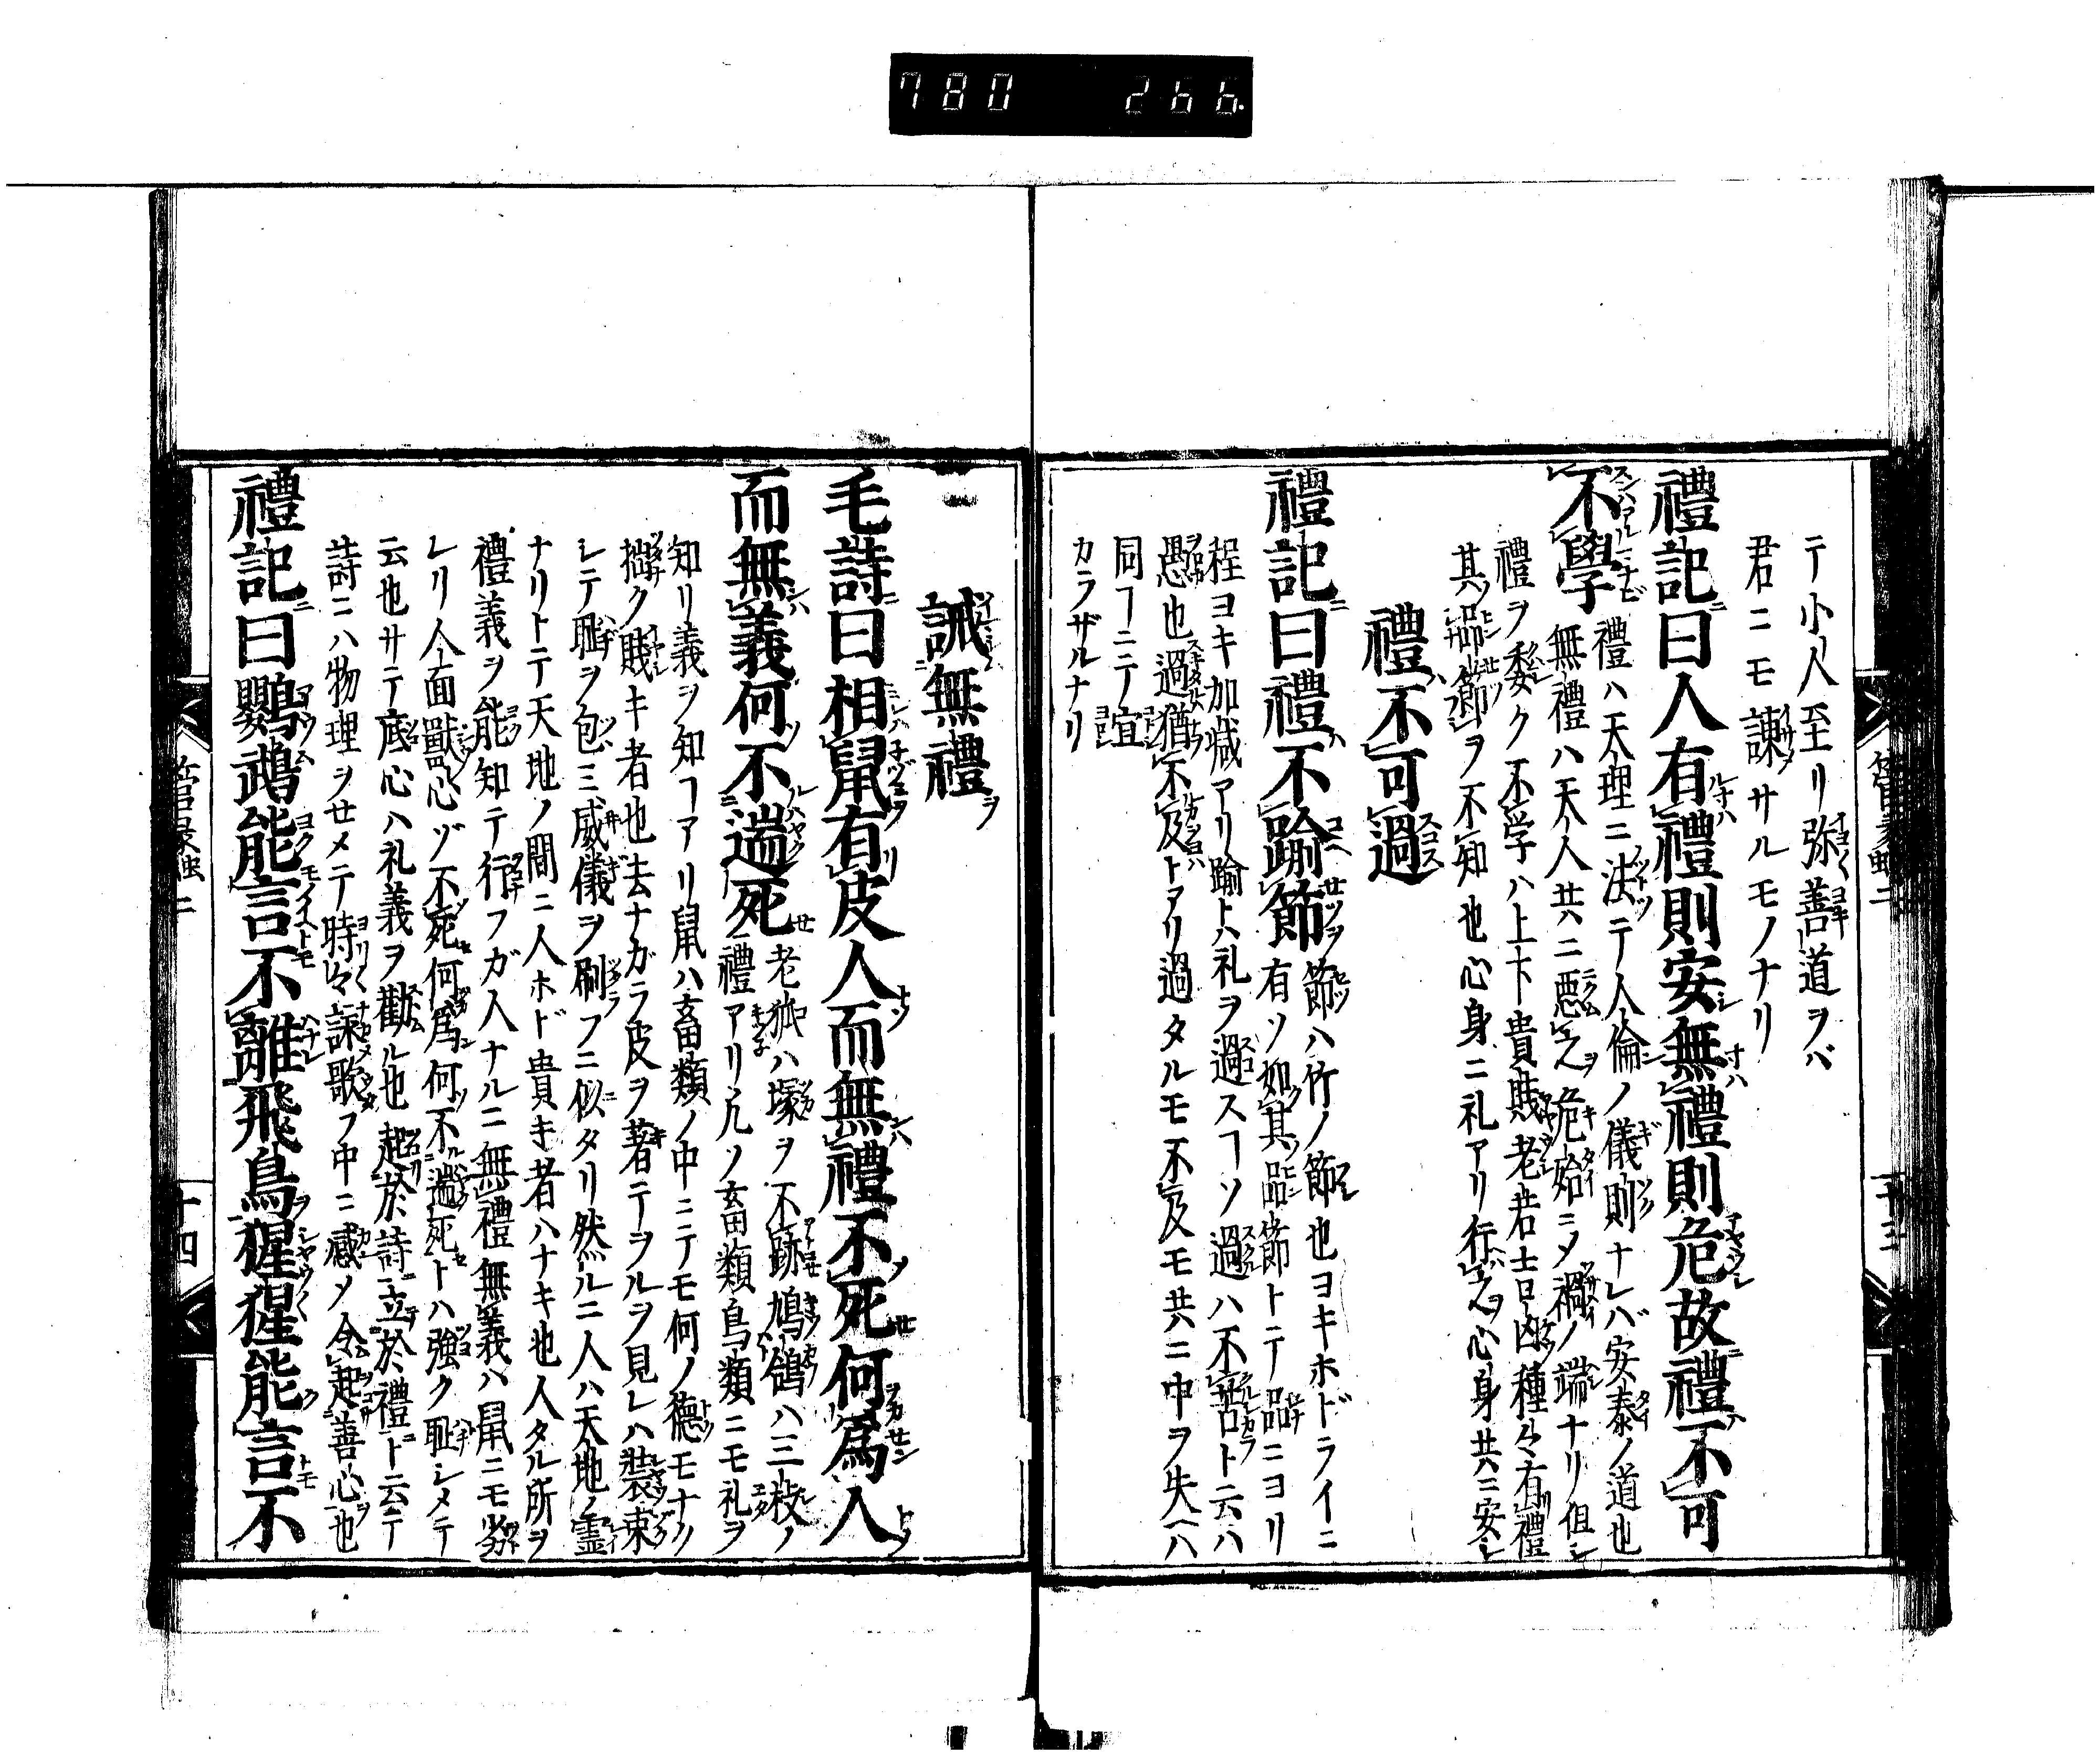 780 266
テ小人至リ弥善道ヲバ
君ニモ諫サルモノナリ
禮記曰人有禮則安無禮則危故禮不可
不學 禮ハ天理ニ法テ人倫ノ儀則ナレバ安泰ノ道也
無禮ハ天人共ニ悪之危殆ニメ禍ノ端ナリ但シ
禮ヲ委ク不学ハ上下貴賤老若吉凶種々有禮
其品節ヲ不知也心身ニ礼アリ行之心身共ニ安シ
禮不可過
禮記曰禮不踰節 節ハ竹ノ節也ヨキホドライニ
有ソ如其品節トテ品ニヨリ
程ヨキ加減アリ踰トハ礼ヲ過スヿソ過ハ不苦ト云ハ
愚也過猶不及トアリ過タルモ不及モ共ニ中ヲ失ヘハ
同ヿニテ宜
カラザルナリ
誡無禮
毛詩曰相鼠有皮人而無禮不死何為人
而無義何不遄死 老狐ハ塚ヲ不跡鳩鴿ハ三枝ノ
禮アリ凡ソ畜類鳥類ニモ礼ヲ
知リ義ヲ知ヿアリ鼠ハ畜類ノ中ニテモ何ノ德モナク
拙ク賤キ者也去ナガラ皮ヲ著テヲルヲ見レハ装束
シテ恥ヲ包ミ威儀ヲ刷フニ似タリ然ルニ人ハ天地ノ霊
ナリトテ天地ノ間ニ人ホド貴キ者ハナキ也人タル所ヲ
禮義ヲ能知テ行フガ人ナルニ無禮無義ハ鼠ニモ劣
レリ人面獸心ゾ不死何為何不遄死トハ強ク恥シメテ
云也サテ底心ハ礼義ヲ勸ル也起於詩立於禮ト云テ
詩ニハ物理ヲセメテ時々諫歌フ中ニ感メ令起善心也
禮記曰鸚鵡能言不離飛鳥猩猩能言不
管蠡 二
十三
十四